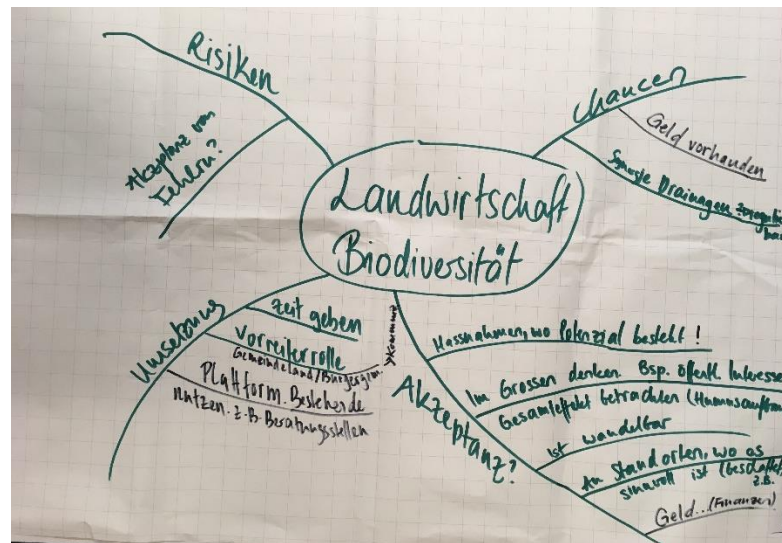 Landwirtschaft
Biodiversität
Risiken
Akzeptanz von
Fehlern?
Chancen
Geld vorhanden
Synergie Drainagen
Umsetzung
Zeit geben
Vorreiterrolle
Gemeindeland/Bürgergem.
Plattform. Bestehende
nutzen. z.B. Beratungsstellen
Akzeptanz?
Massnahmen, wo Potenzial besteht!
Im Grossen denken. Bsp. öffentl. Interesse
Gesamteffekt betrachten (Humusaufbau
ist wandelbar
An Standorten, wo es
sinnvoll ist
z.B.
Geld... (Finanzen)